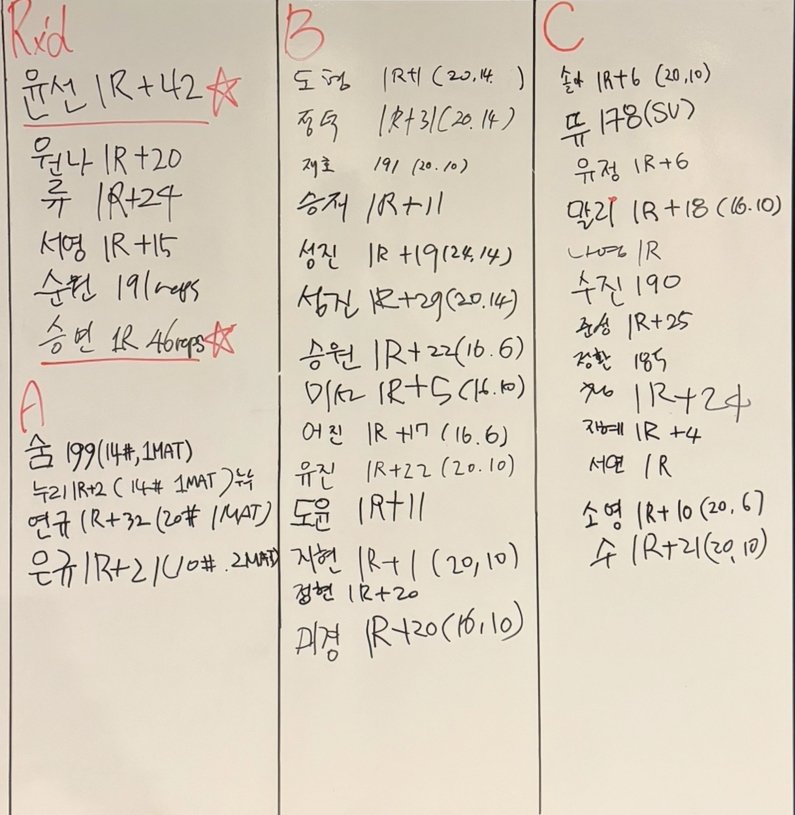 Rx'd
윤선 1R+42
원나 1R+20
류 1R+24
서영 1R+15
순원 191reps
승연 1R 46reps
A
숨 199(14#, 1MAT)
누리 1R+2 (14# 1MAT)
연규 1R+32 (20# 1MAT)
은규 1R+21 (10#. 2MAT)
B
도형 1R+1 (20,14 )
정덕 1R+31(20.14)
재호 191 (20.10)
승저 1R+11
성진 1R+19(24.14)
성진 1R+29(20.14)
승원 1R+22(16.6)
미선 1R+5(16.10)
어진 1R+17 (16.6)
유진 1R+22 (20.10)
도윤 1R+11
지현 1R+1 (20,10)
정현 1R+20
미경 1R+20(16,10)
C
1R+6 (20,10)
쮸 178(SU)
유정 1R+6
말리 1R+18(16.10)
나영 1R
수진 190
준성 1R+25
정환 185
1R+24
지혜 1R+4
서연 1R
소영 1R+10(20,6)
수 1R+21(20,10)